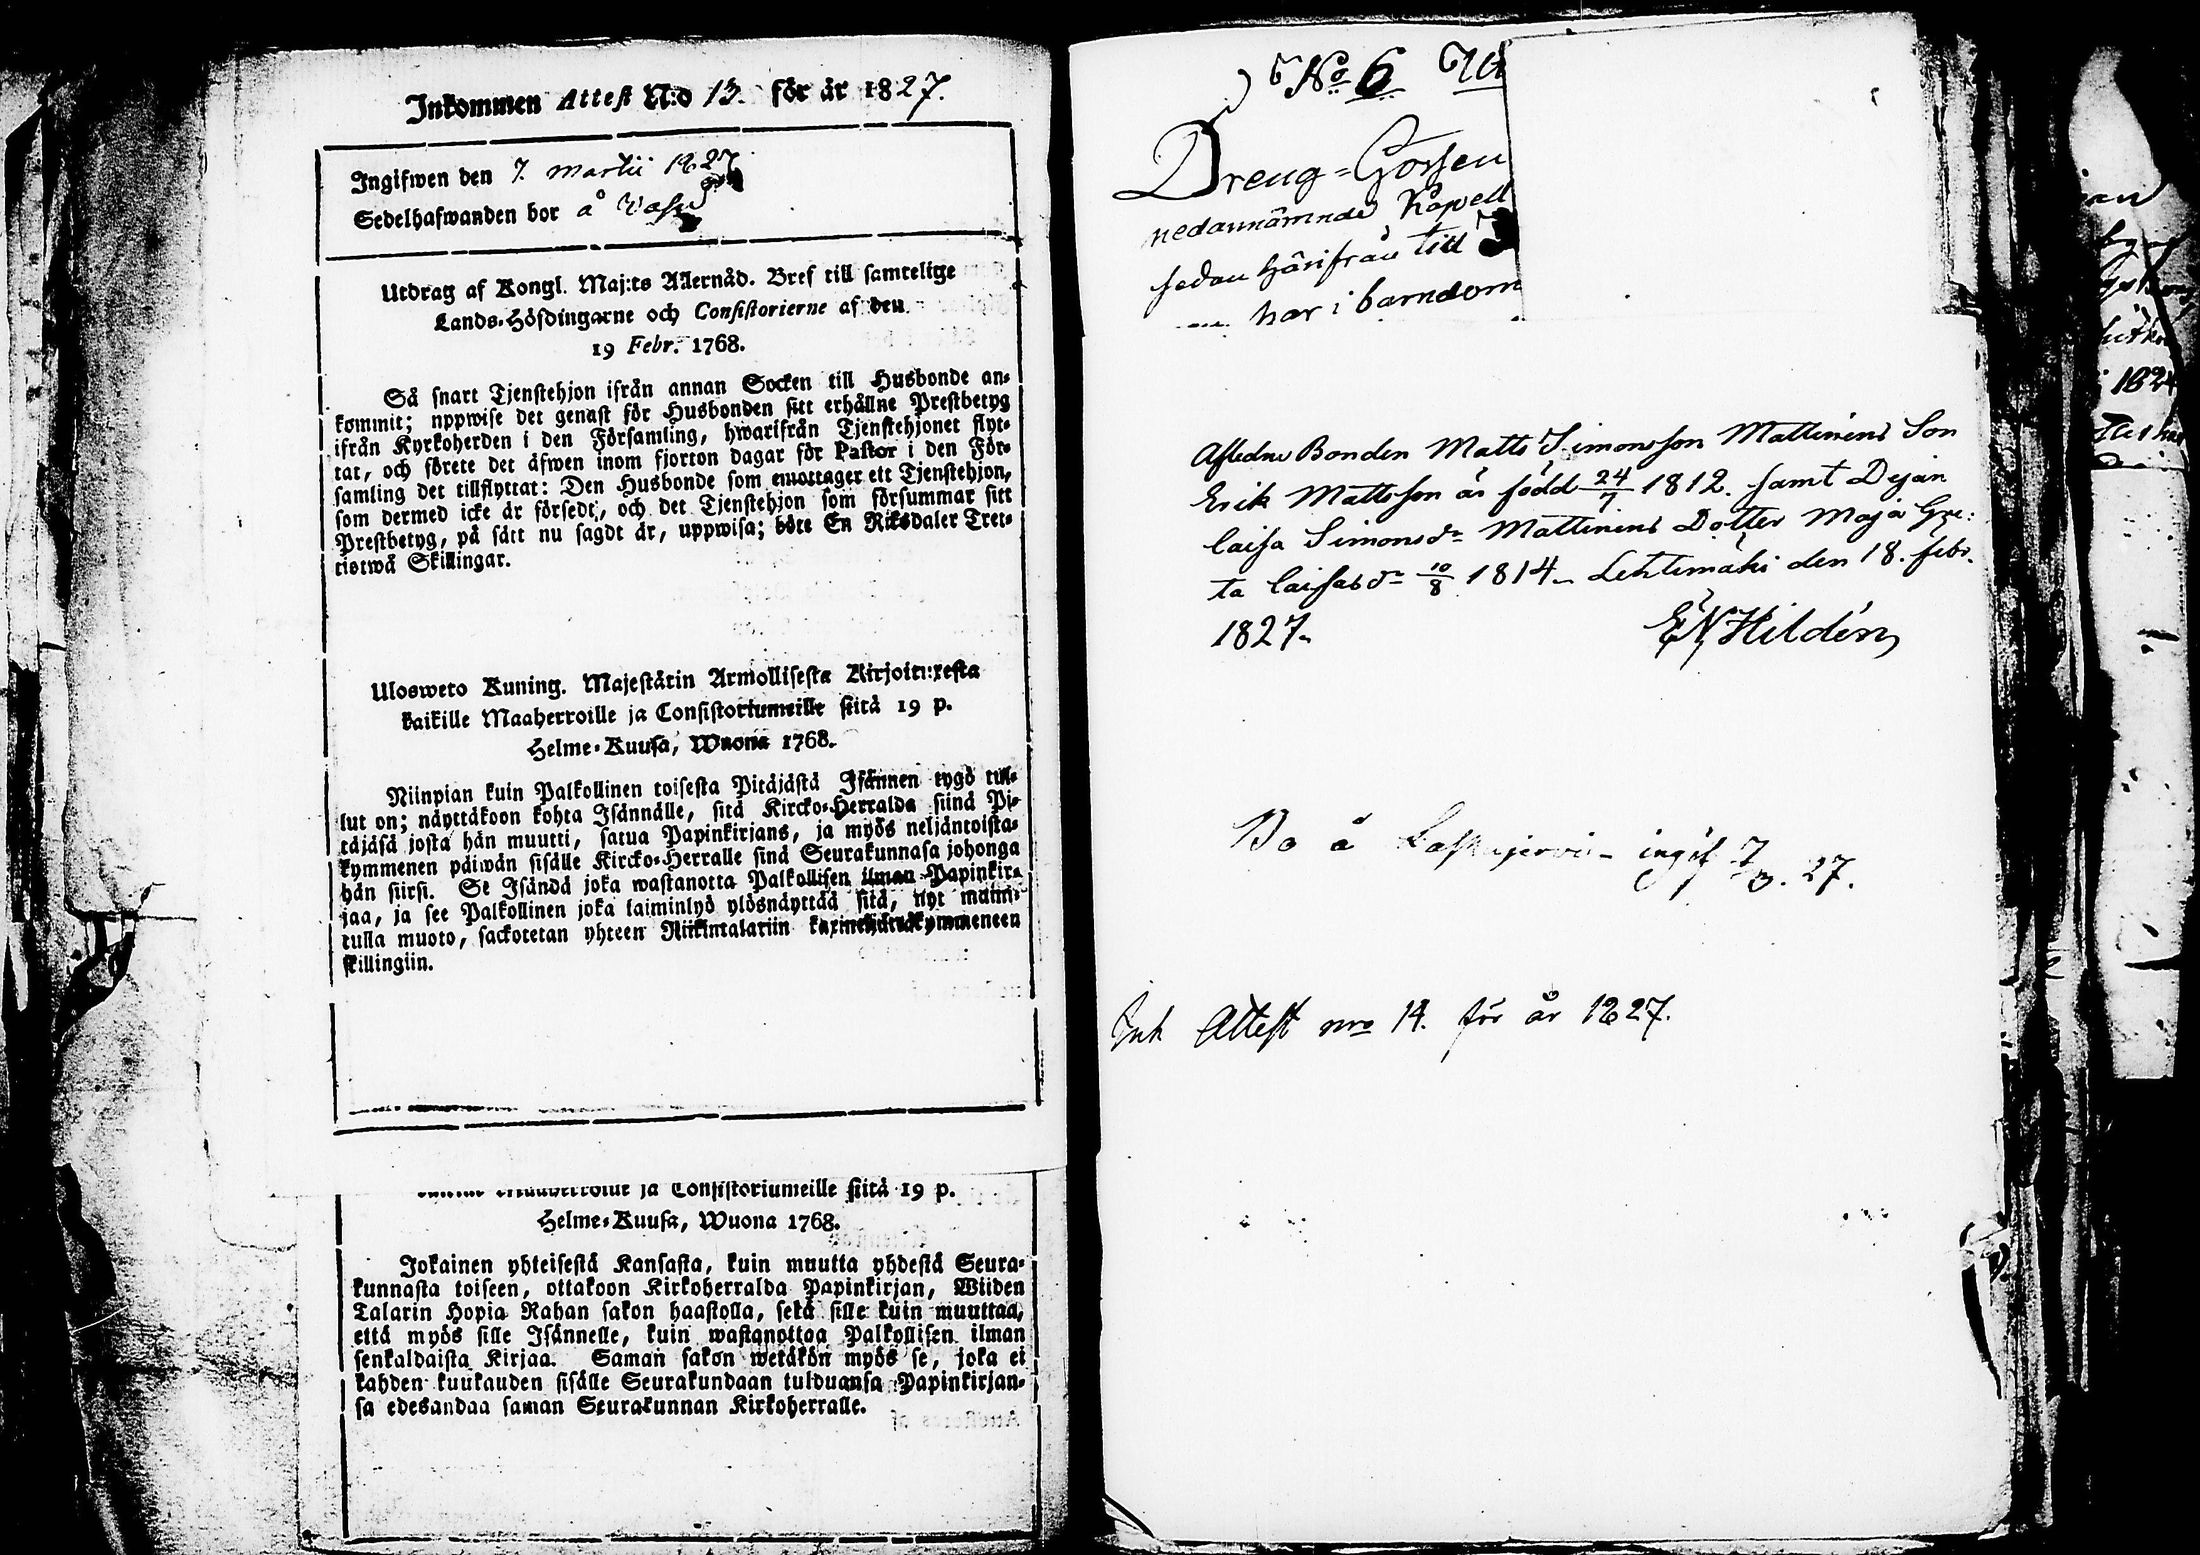 Inkommen Attest N:o 13. för år 1827.
Ingifwen den 7. Martii 1827
Sedelhafwanden bor å
Utdrag af Kongl. Maj:ts Allernåd. Bref till samtelige
Lands-Höfdingarne och Consistorierne af den
19 Febr. 1768.
Så snart Tjenstehjon ifrån annan Socken till Husbonde an-
kommit; uppwise det genast för Husbonden sitt erhållne Prestbetyg
ifrån Kyrkoherden i den Församling, hwarifrån Tjenstehjonet flyt-
tat, och förete det äfwen inom fjorton dagar för Pastor i den För-
samling det tillflyttat: Den Husbonde som emottager ett Tjenstehjon,
som dermed icke är försedt, och det Tjenstehjon som försummar sitt
Prestbetyg, på sätt nu sagdt är, uppwisa; böte En Riksdaler Tret-
tiotwå Skillingar.
Ulosweto Kuning. Majestätin Armollisesta Kirjoituxesta
kaikille Maaherroille ja Consistoriumeille siitä 19 p.
Helme-Kuusa, Wuona 1768.
Niinpian kuin Palkollinen toisesta Pitäjästä Isännen tygö tul-
lut on; näyttäkoon kohta Isännälle, sitä Kircko-Herralda siinä Pi-
täjäsä josta hän muutti, satua Papinkirjans, ja myös neljäntoista-
kymmenen päiwän sisälle Kircko-Herralle sinä Seurakunnasa johonga
hän siirsi. Se Isändä joka wastanotta Palkollisen ilman Papinkir-
jaa, ja see Palkollinen joka laiminlyö ylösnäyttää sitä, nyt maini-
tulla muoto, sackotetan yhteen Riikintalariin
skillingiin.
ja Consistoriumeille siitä 19 p.
Helme-Kuusa, Wuona 1768.
Jokainen yhteisestä Kansasta, kuin muutta yhdestä Seura-
kunnasta toiseen, ottakoon Kirkoherralda Papinkirjan, Wiiden
Talarin Hopia Rahan sakon haastolla, sekä sille kuin muuttaa,
että myös sille Isännelle, kuin wastanottaa Palkollisen ilman
senkaldaista Kirjaa. Saman sakon wetäkön myös se, joka ei
kahden kuukauden sisälle Seurakundaan tulduansa Papinkirjan-
sa edesandaa saman Seurakunnan Kirkoherralle.
No 6
Dreng-Gossen
nedannämnde Kapell
sedan härifrån till
har i barndom
Afledne Bonden Matts Simonsson Mattinens Son
Erik Mattsson är född 24/7 1812. samt Dejan
Caisa Simonsdr Mattinens Dotter Maja Gre:
ta Caisasdr 10/8 1814 Lehtimäki den 18. febr.
1827.
EN Hildén
Bo å ingif 7/3. 27.
Ink Attest nro 14. för år 1827.